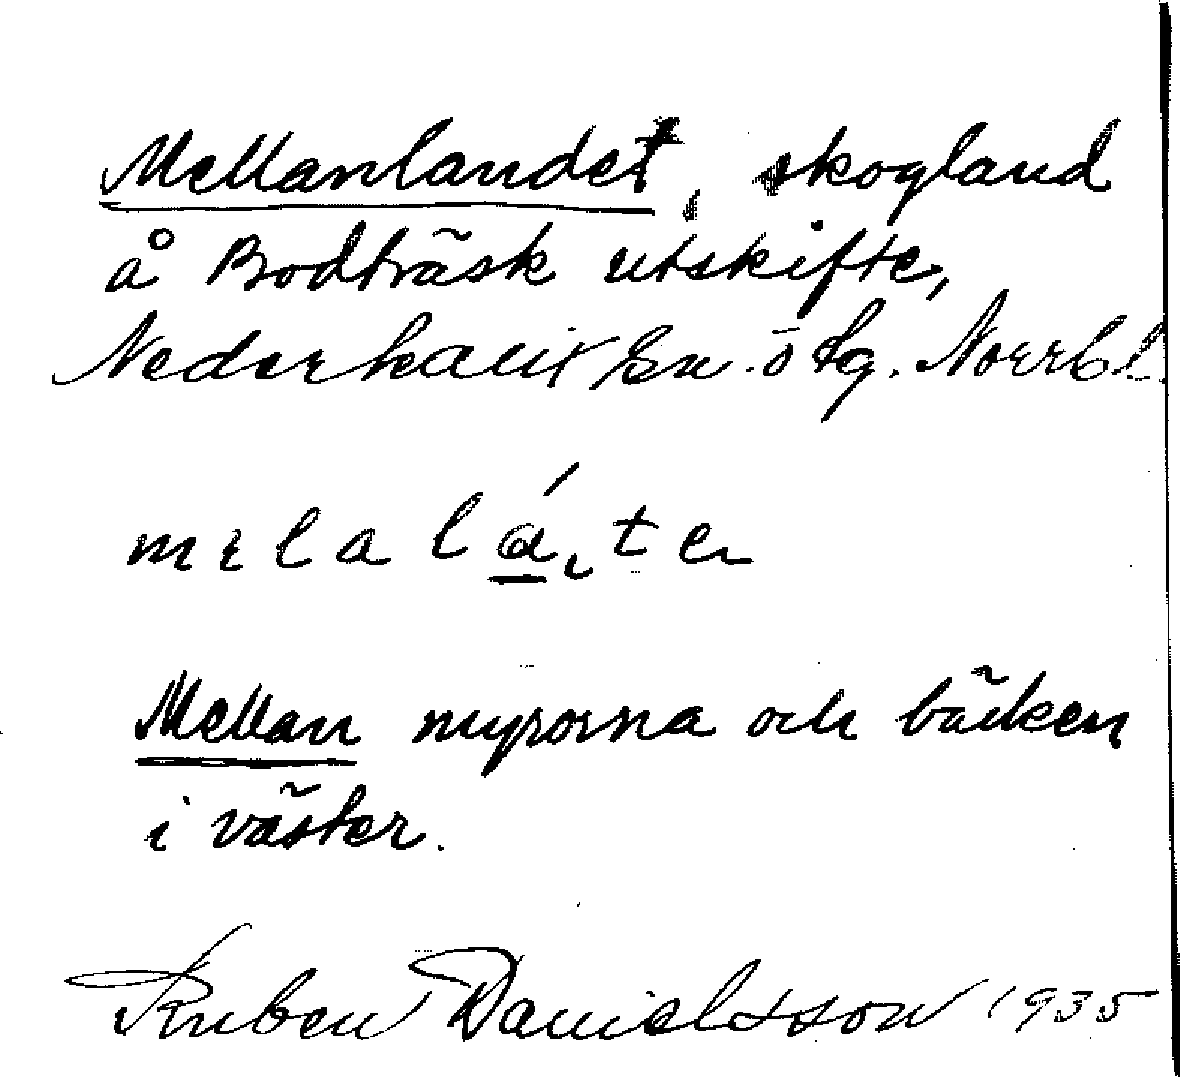 Mellanlandet, skogland
å Bodträsk utskifte,
Nederkalix sn. ö tg. Norrb l.
Mellan myrorna och bäcken
i väster.
Ruben Danielsson 1935